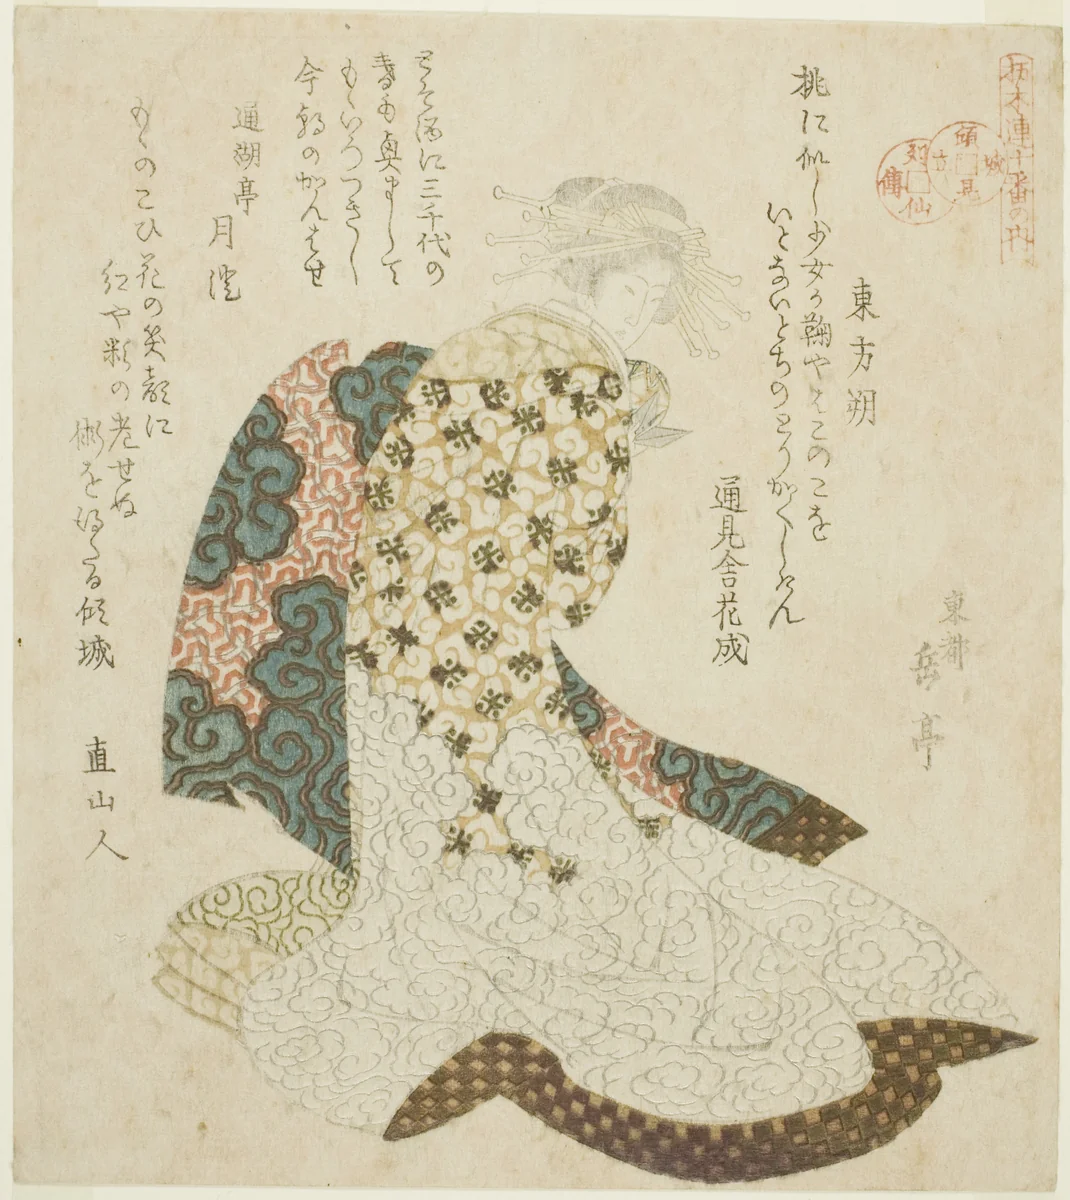 栃木連十番の内
傾城見立
列仙傳
東方朔
桃に似し少女か鞠や
そこのこを
いとないとちの
とりかくしけん
通見舎花成
とそ酒に三千代の
春も
もゝいろつきし
今朝のかんはせ
通湖亭
月
もゝのこひ花の笑顔に
紅や粉の
老せぬ
術を得たる傾城
直山人
東都
岳亭